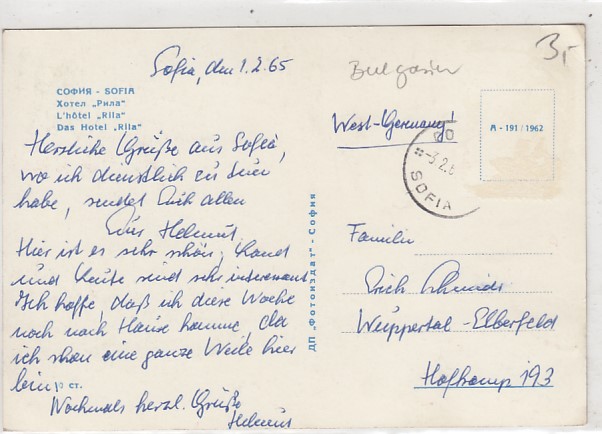 Sofia, den 1.2.65
СОФИЯ - SOFIA
Хотел „Рила"
L'hôtel „Rila"
Das Hotel „Rila"
Herzliche Grüße aus Sofia,
wo ich dienstlich zu tun
habe, sendet Euch allen
Euer Helmut.
Hier ist es sehr schön, Land
und Leute sind sehr interessant
Ich hoffe, daß ich diese Woche
noch nach Hause komme, da
ich schon eine ganze Weile hier
bin.
10 ст.
Nochmals herzl. Grüße
Helmut
ДП „Фотоиздат" - София
Bulgarien
3,-
West-Germany!
А - 191 / 1962
-3.2.6
SOFIA
Familie
Erich Schmidt
Wuppertal-Elberfeld
Hofkamp 193